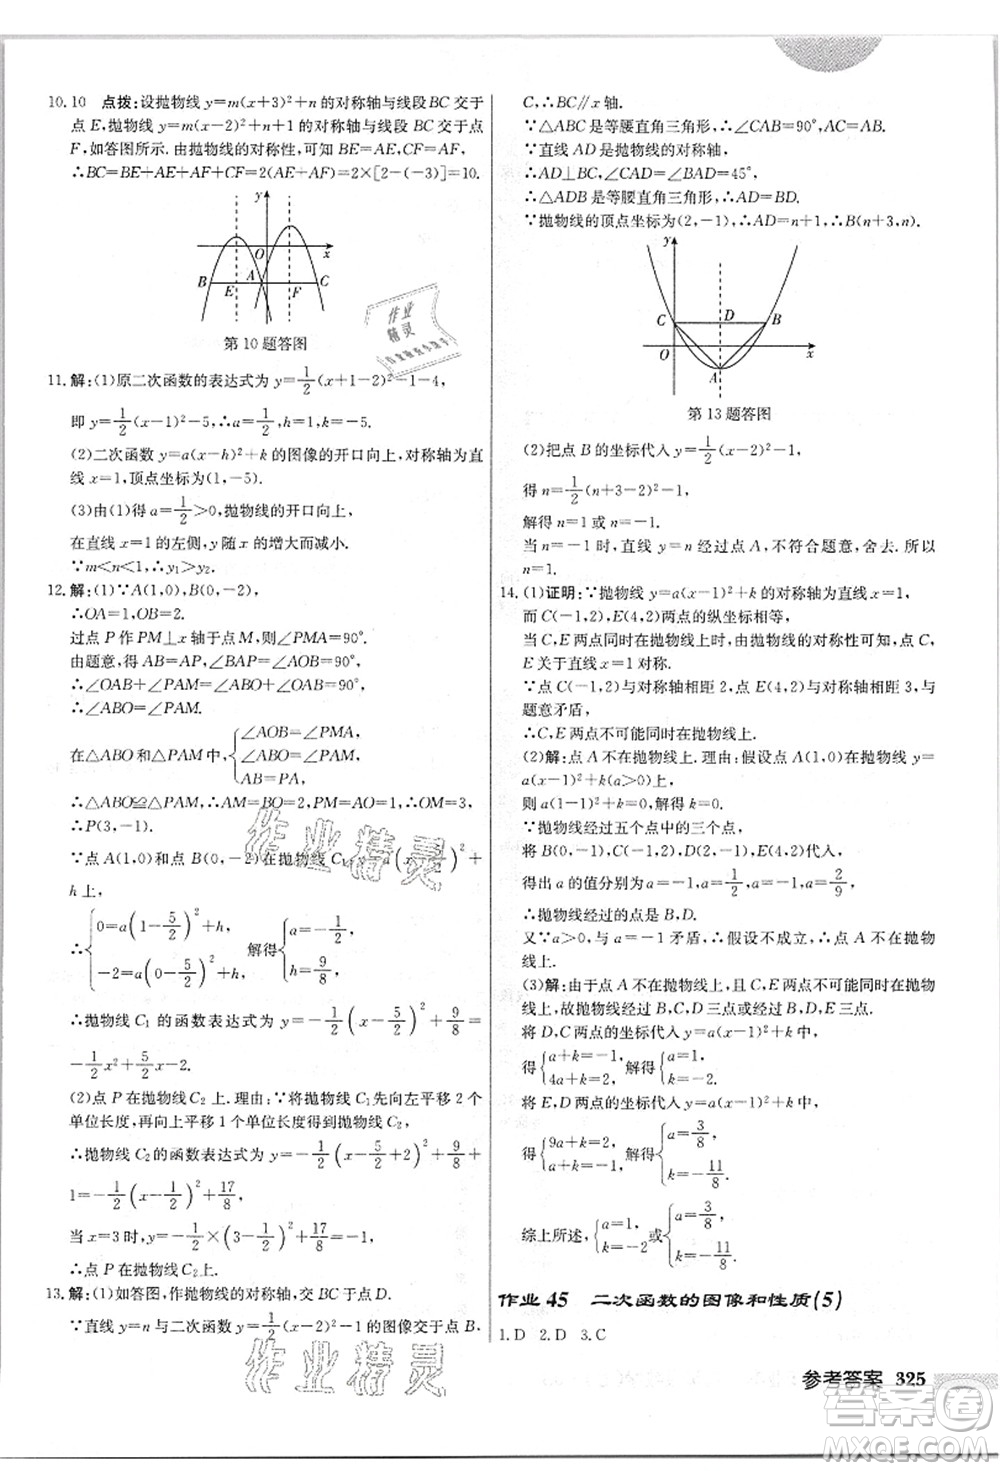 10. 10　点拨:设抛物线 y=m(x+3)²+n 的对称轴与线段 BC 交于
点 E,抛物线 y=m(x-2)²+n+1 的对称轴与线段 BC 交于点
F,如答图所示.由抛物线的对称性,可知 BE=AE,CF=AF,
∴BC=BE+AE+AF+CF=2(AE+AF)=2×[2-(-3)]=10.
y
O x
B E A F C
第 10 题答图
11. 解:(1)原二次函数的表达式为 y=1/2(x+1-2)²-1-4,
即 y=1/2(x-1)²-5,∴a=1/2,h=1,k=-5.
(2)二次函数 y=a(x-h)²+k 的图像的开口向上,对称轴为直
线 x=1,顶点坐标为(1,-5).
(3)由(1)得 a=1/2>0,抛物线的开口向上,
在直线 x=1 的左侧,y 随 x 的增大而减小.
∵m<n<1,∴y₁>y₂.
12. 解:(1)∵A(1,0),B(0,-2),
∴OA=1,OB=2.
过点 P 作 PM⊥x 轴于点 M,则∠PMA=90°.
由题意,得 AB=AP,∠BAP=∠OAB=90°,
∴∠OAB+∠PAM=∠OAB+∠ABO=90°,
∴∠ABO=∠PAM.
在△ABO 和△PAM 中,{∠AOB=∠PMA,
∠ABO=∠PAM,
BA=PA,
∴△ABO≌△PAM,∴AM=BO=2,PM=AO=1,∴OM=3,
∴P(3,-1).
∵点 A(1,0)和点 B(0,-2)在抛物线 C₁:y=a(x-5/2)²+
h 上,
∴{0=a(1-5/2)²+h,
-2=a(0-5/2)²+h, 解得{a=-1/2,
h=9/8.
∴抛物线 C₁ 的函数表达式为 y=-1/2(x-5/2)²+9/8=
-1/2x²+5/2x-2.
(2)点 P 在抛物线 C₂ 上.理由:∵将抛物线 C₁先向左平移 2 个
单位长度,再向上平移 1 个单位长度得到抛物线 C₂,
∴抛物线 C₂的函数表达式为 y=-1/2(x-5/2+2)²+9/8+
1=-1/2(x-1/2)²+17/8,
当 x=3 时,y=-1/2×(3-1/2)²+17/8=-1,
∴点 P 在抛物线 C₂上.
13. 解:(1)如答图,作抛物线的对称轴,交 BC 于点 D.
∵直线 y=n 与二次函数 y=1/2(x-2)²-1 的图像交于点 B,
C,∴BC∥x 轴.
∵△ABC 是等腰直角三角形,∴∠CAB=90°,AC=AB.
∵直线 AD 是抛物线的对称轴,
∴AD⊥BC,∠CAD=∠BAD=45°,
∴△ADB 是等腰直角三角形,∴AD=BD.
∵抛物线的顶点坐标为(2,-1),∴AD=n+1,∴B(n+3,n).
y
C D B
O A x
第 13 题答图
(2)把点 B 的坐标代入 y=1/2(x-2)²-1,
得 n=1/2(n+3-2)²-1,
解得 n=1 或 n=-1.
当 n=-1 时,直线 y=n 经过点 A,不符合题意,舍去,所以
n=1.
14. (1)证明:∵抛物线 y=a(x-1)²+k 的对称轴为直线 x=1,
而 C(-1,2),E(4,2)两点的纵坐标相等,
当 C,E 两点同时在抛物线上时,由抛物线的对称性可知 C,
E 关于直线 x=1 对称.
∵点 C(-1,2)与对称轴相距 2,点 E(4,2)与对称轴相距 3,与
题意矛盾,
∴C,E 两点不可能同时在抛物线上.
(2)解:点 A 不在抛物线上.理由:假设点 A(1,0)在抛物线 y=
a(x-1)²+k(a>0)上,
则 a(1-1)²+k=0,解得 k=0.
∵抛物线经过五个点中的三个点,
将 B(0,-1),C(-1,2),D(2,-1),E(4,2)代入,
得出 a 的值分别为 a=-1,a=1/2,a=-1,a=2/9,
∴抛物线经过的点是 B,D.
又∵a>0,与 a=-1 矛盾,∴假设不成立,∴点 A 不在抛物
线上.
(3)解:由于点 A 不在抛物线上,且 C,E 两点不可能同时在抛
物线上,故抛物线经过 B,C,D 三点或经过 B,D,E 三点.
将 D,C 两点的坐标代入 y=a(x-1)²+k(a>0)中,
得{a+k=-1,
4a+k=2, 解得{a=1,
k=-2.
将 E,D 两点的坐标代入 y=a(x-1)²+k(a>0)中,
得{9a+k=2,
a+k=-1, 解得{a=3/8,
k=-11/8.
综上所述,{a=1,
k=-2 或{a=3/8,
k=-11/8.
作业 45　二次函数的图像和性质(5)
1. D　2. D　3. C
参考答案　325
作业精灵
作业精灵
作业精灵
答案圈
MXQE.COM